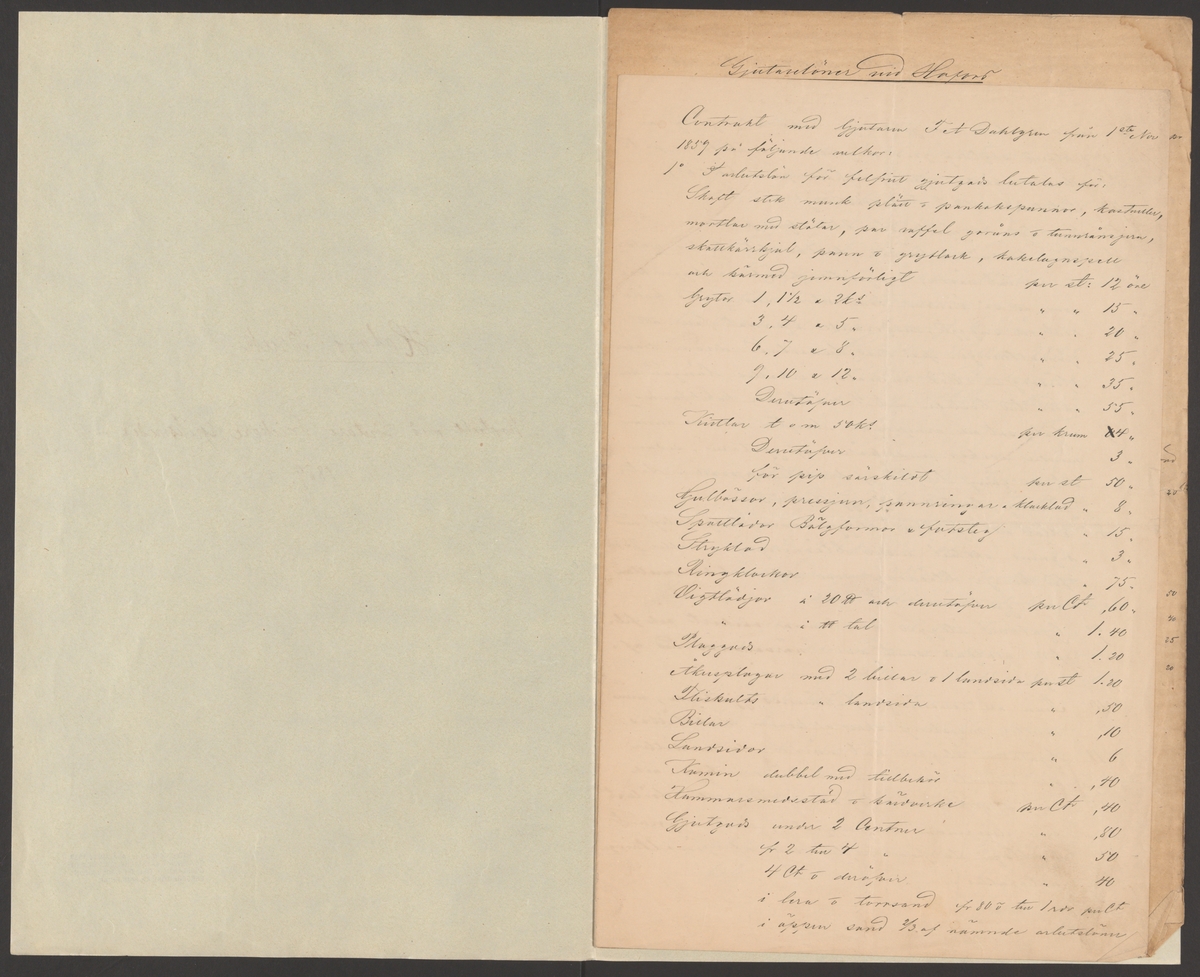 Gjutarelöner vid Hofors
Contrakt med Gjutaren F A Dahlgren från 1sta Nov
1859 på följande vilkor:
1o I arbetslön för felfritt gjutgods betalas för:
Skaft stek munk plätt o pankakspannor, kastruller,
mortlar med stötar, par våffel goråns o tunnrånsjern,
skottkärrhjul, pann o grytlock, kakelugnspell
och härmed jemnförligt per st: 12 öre
Grytor 1, 1½ a 2 kr " " 15 "
3, 4 a 5 " " " 20 "
6, 7 a 8 " " " 25 "
9, 10 a 12 " " " 35 "
Derutöfver " " 55 "
Kittlar t o m 50 kr per krum 4 "
Derutöfver 3 "
för pip särskildt per st 50 "
Hjulbössor, pressjern, pannringar a klocklod " 8 "
Spottlådor Bälgformor a fotsteg " 15 "
Stryklod " 3 "
Ringklockor " 75 "
Vigtlodjor à 20 ℔ och derutöfver per Ct ,60 "
" i ℔ tal " 1.40
Ploggods " 1.20
Åkerplogar med 2 billar o 1 landsida per st 1.20
" landsida " ,50
Billar " ,10
Landsidor " 6
Kamin dubbel med tillbehör " ,40
Hammarsmedsstäd o hårdvirke per Ct ,40
Gjutgods under 2 Centner " ,80
fr 2 till 4 " " 50
4 Ct o deröfver " 40
i lera o torrsand fr 80 ö till 1 rdr per Ct
i öppen sand ⅔ af nämnde arbetslöner